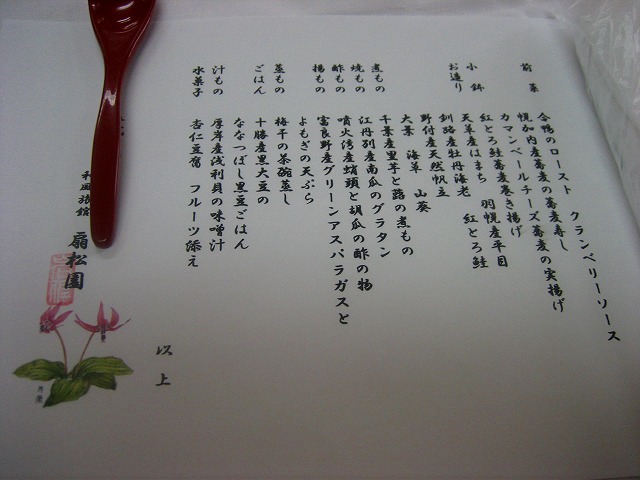 前菜
合鴨のロースト クランベリーソース
幌加内産蕎麦の蕎麦寿し
カマンベールチーズ蕎麦の実揚げ
紅とろ鮭蕎麦巻き揚げ
小鉢
お造り
天草産はまち 羽幌産平目
釧路産牡丹海老 紅とろ鮭
野付産天然帆立
大葉 海草 山葵
煮もの
千葉産里芋と蕗の煮もの
焼もの
江丹別産南瓜のグラタン
酢もの
噴火湾産蛸頭と胡瓜の酢の物
揚もの
富良野産グリーンアスパラガスと
よもぎの天ぷら
蒸もの
梅干の茶碗蒸し
ごはん
十勝産黒大豆の
ななつぼし黒豆ごはん
汁もの
厚岸産浅利貝の味噌汁
水菓子
杏仁豆腐 フルーツ添え
以上
扇松園